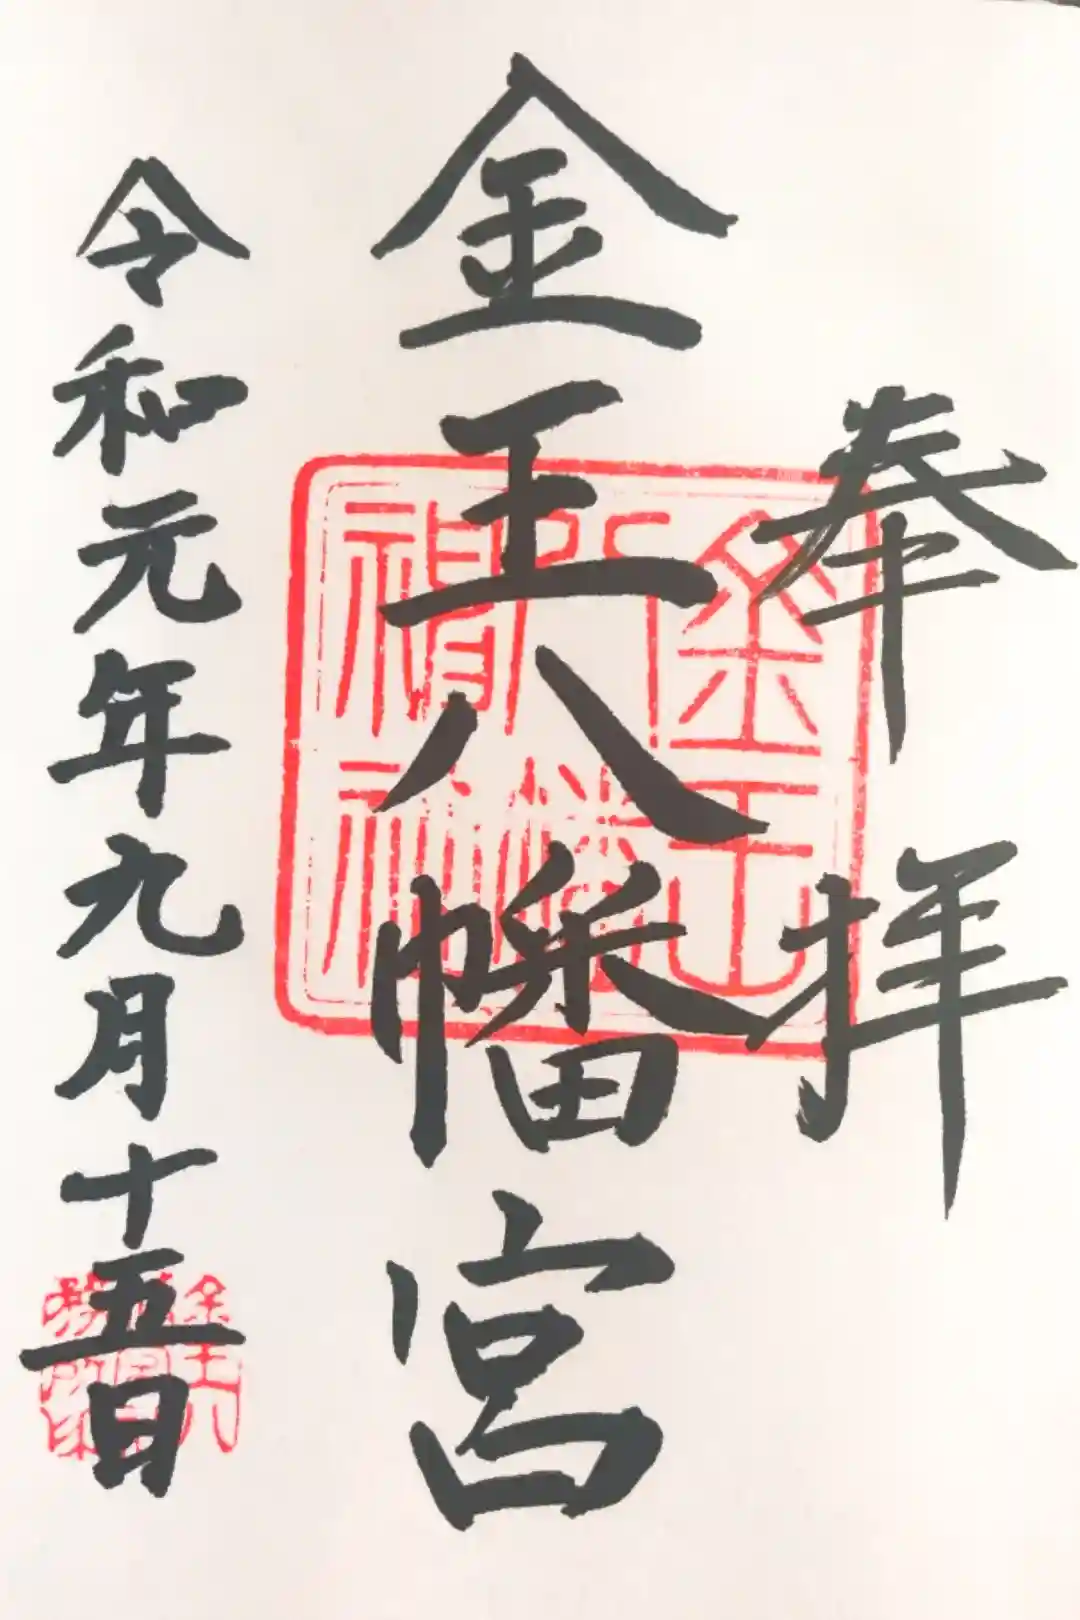 奉拝
金王八幡宮
令和元年九月十五日
金王
八幡
神社